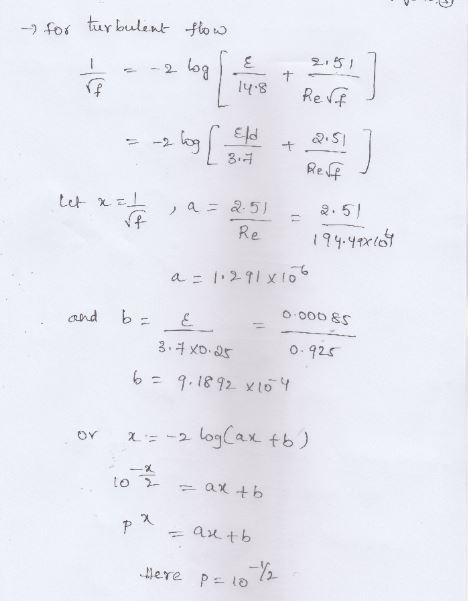 → for turbulent flow
1/√f = -2 log [ ε/14.8 + 2.51/Re√f ]
= -2 log [ ε/d/3.7 + 2.51/Re√f ]
Let x = 1/√f , a = 2.51/Re = 2.51/194.49×10^4
a = 1.291 × 10^-6
and b = ε/3.7×0.25 = 0.00085/0.925
b = 9.1892 × 10^-4
or x = -2 log(ax + b)
10^-x/2 = ax + b
p^x = ax + b
Here p = 10^-1/2